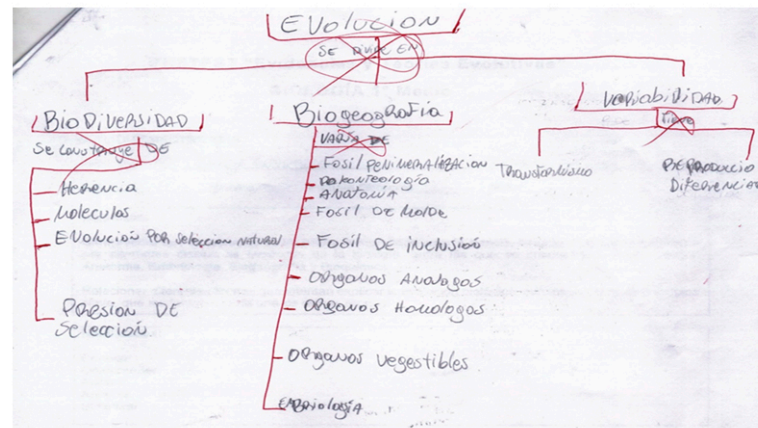 EVOLUCION
SE DIVIDE EN
BIODIVERSIDAD
Se construye DE
Herencia
Moleculas
EVOLUCIÓN POR selección NATURAL
PRESION DE
Selección
Biogeografía
VARÍA DE
FOSIL PERMINERALIZACION
ANATOMIA
FOSIL DE MOLDE
FOSIL DE inclusión
ORganos Analogos
ORganos Homologos
ORganos vegestibles
EMBRiología
VARiabiliDAD
Tiene
TRANSfoRmismo
REPRODUCCIO
DIFERENCIA